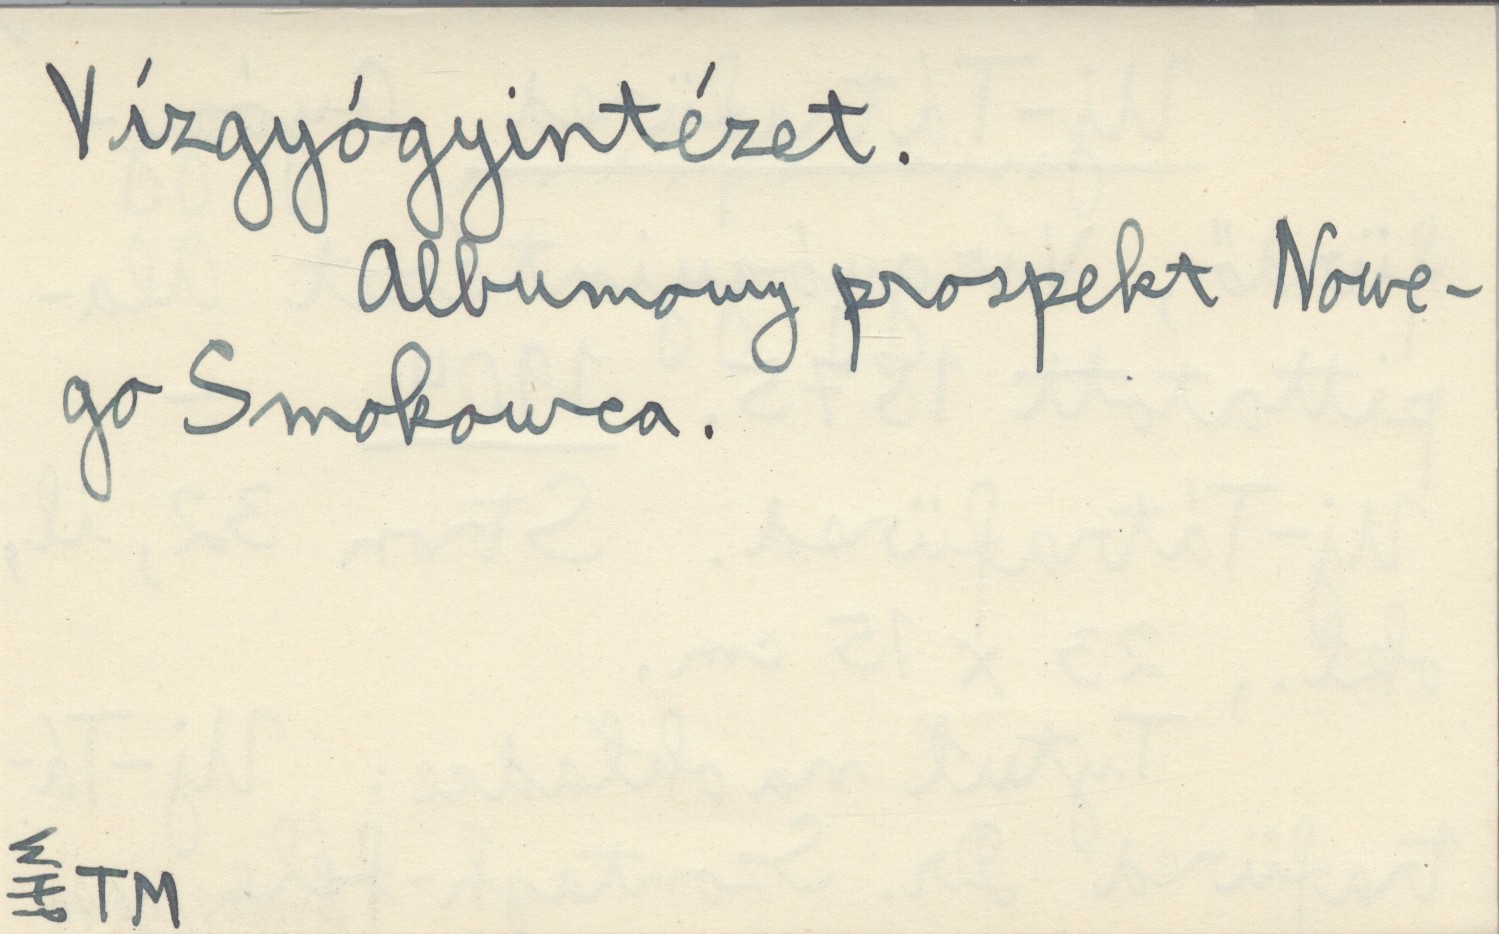 Vízgyógyintézet.
Albumowy prospekt Nowe-
go Smokowca.
WHP TM